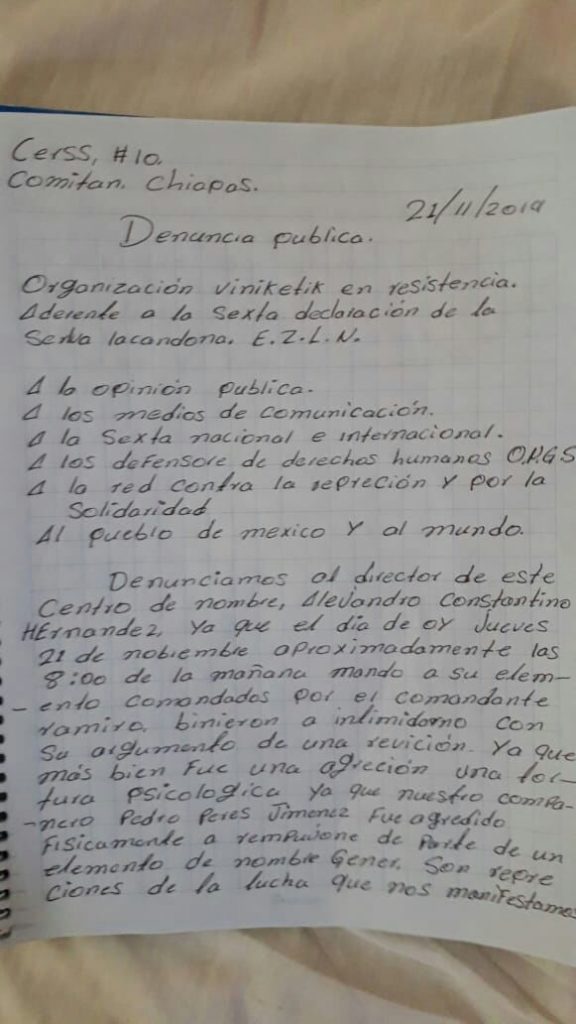 Cerss, #10.
Comitan. Chiapas.
21/11/2019
Denuncia publica.
Organización viniketik en resistencia.
Aderente a la Sexta declaración de la
Selva lacandona. E.Z.L.N.
A la opinión publica.
A los medios de comunicación.
A la Sexta nacional e internacional.
A los defensore de derechos humanos O.R.G.S
A la red contra la repreción y por la
Solidaridad
Al pueblo de mexico y al mundo.
Denunciamos al director de este
Centro de nombre, Alejandro Constantino
HErnandez, ya que el día de oy Jueves
21 de nobiembre aproximadamente las
8:00 de la mañana mando a su elem-
-ento comandados por el comandante
ramiro, binieron a intimidarno con
Su argumento de una revición. Ya que
más bien Fue una agreción una tor-
tura psicologica ya que nuestro compa-
-ñero Pedro Peres Jimenez Fue agredido
Fisicamente a rempujone de parte de un
elemento de nombre Gener. Son repre
ciones de la lucha que nos manifestamos